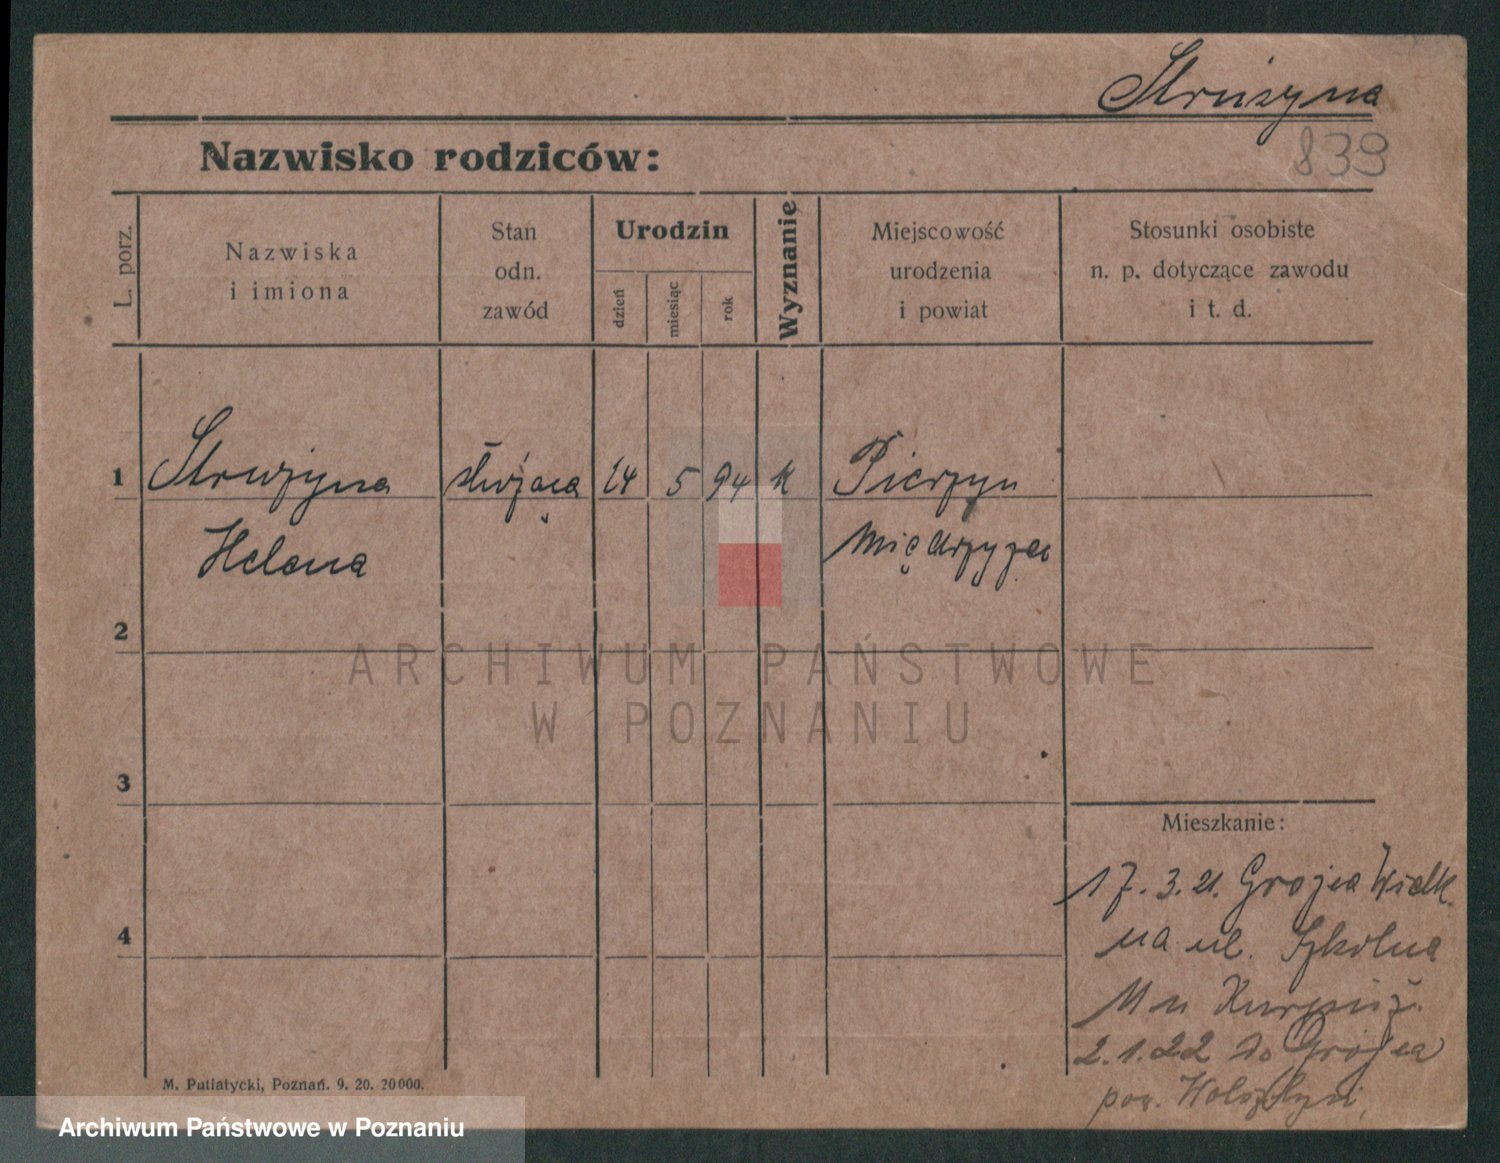 Strużyna
839
Nazwisko rodziców:
L. porz.
Nazwiska
i imiona
Stan
odn.
zawód
Urodzin
dzień
miesiąc
rok
Wyznanie
Miejscowość
urodzenia
i powiat
Stosunki osobiste
n. p. dotyczące zawodu
i t. d.
1 Strużyna służąca 24 5 94 k Pierzyn
Helena Międzyrzec
2
ARCHIWUM PAŃSTWOWE
W POZNANIU
3
Mieszkanie:
17. 3. 21. Grojca Wielk.
4
na ul. Szkolna
11 u
2. 1. 22 do Grojca
pow. Wolsztyn
M. Putiatycki, Poznań. 9. 20. 20000.
Archiwum Państwowe w Poznaniu